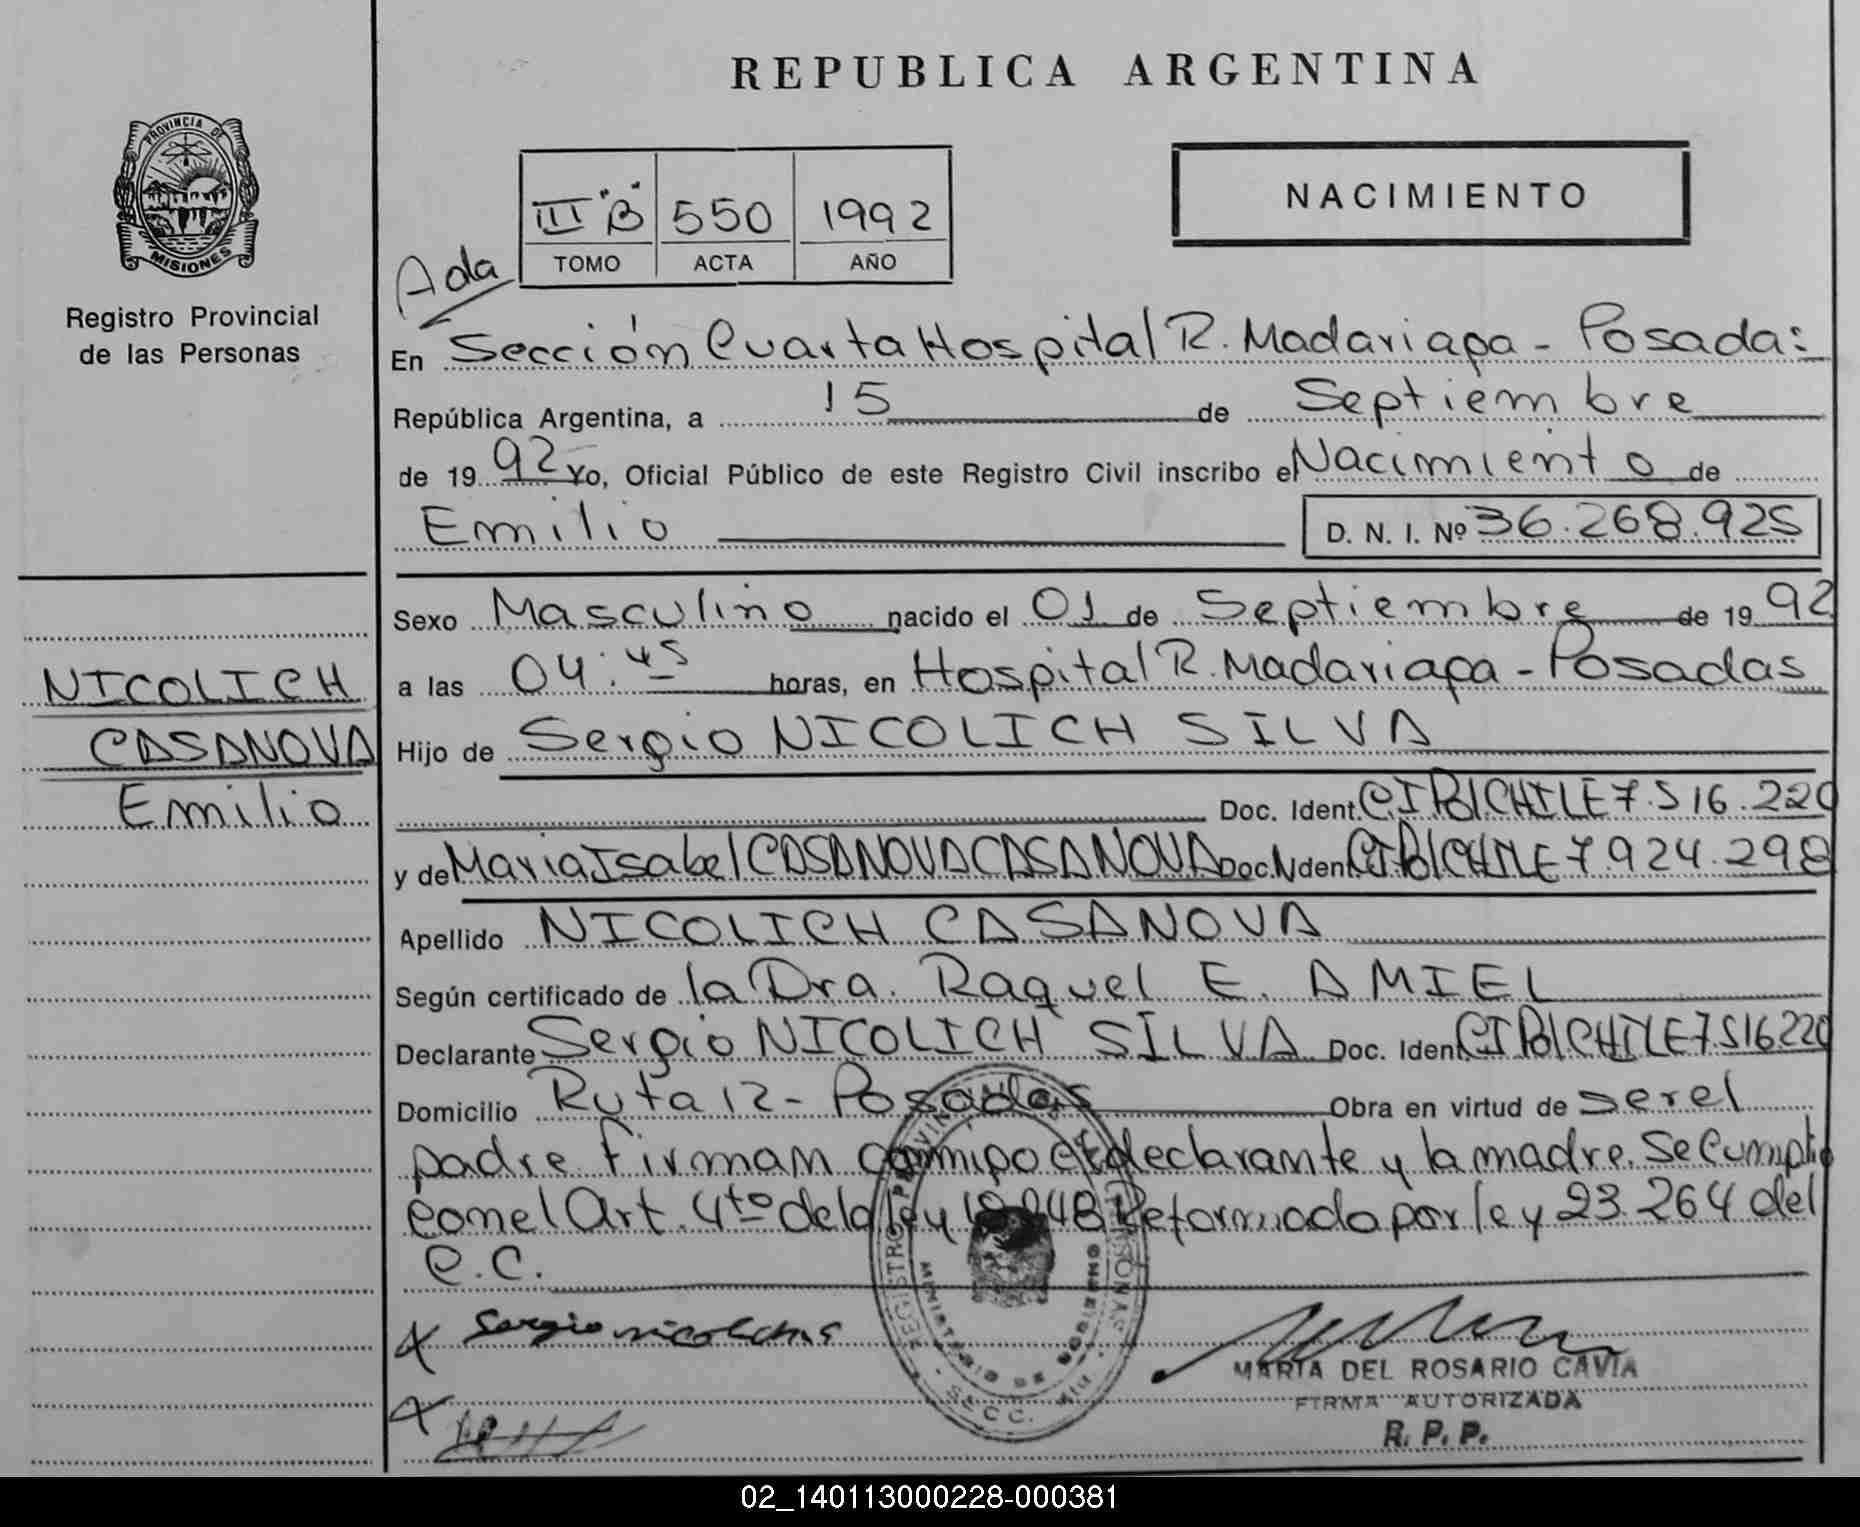 REPUBLICA ARGENTINA
PROVINCIA DE
MISIONES
Registro Provincial
de las Personas
NACIMIENTO
III "B" 550 1992
TOMO ACTA AÑO
Ada
En Sección Cuarta Hospital R. Madariaga - Posadas
República Argentina, a 15 de Septiembre
de 1992 Yo, Oficial Público de este Registro Civil inscribo el Nacimiento de
Emilio D. N. I. Nº 36.268.925
Sexo Masculino nacido el 01 de Septiembre de 1992
NICOLICH
CASANOVA
Emilio
a las 04:45 horas, en Hospital R. Madariaga - Posadas
Hijo de Sergio NICOLICH SILVA
Doc. Ident. CI Pol CHILE 7.516.220
y de Maria Isabel CASANOVA CASANOVA Doc. Ident. CI Pol CHILE 7.924.298
Apellido NICOLICH CASANOVA
Según certificado de la Dra. Raquel E. AMIEL
Declarante Sergio NICOLICH SILVA Doc. Ident. CI Pol CHILE 7516220
Domicilio Ruta 12 - Posadas Obra en virtud de ser el
padre Firman conmigo el declarante y la madre. Se Cumplio
con el Art. 4to de la ley 18.248 Reformado por ley 23.264 del
C.C.
Sergio nicolich s
REGISTRO PROVINCIAL DE LAS PERSONAS
MINISTERIO DE GOBIERNO
SECC.
MARIA DEL ROSARIO CAVIA
FIRMA AUTORIZADA
R. P. P.
02_140113000228-000381